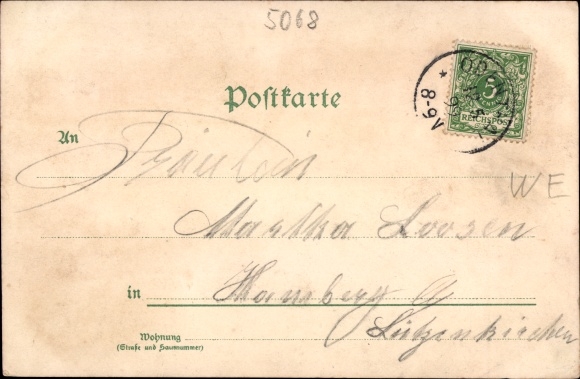 5068
Postkarte
5
REICHSPOST
8-9V
An
Fräulein
WE
Martha Loosen
in
Hamberg
Lützenkirchen
Wohnung
(Straße und Hausnummer)